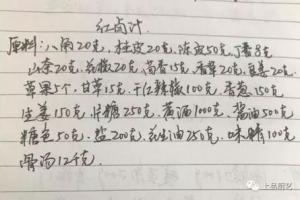 红卤汁
原料:八角20克,桂皮20克,陈皮50克,丁香8克
山奈20克,花椒20克,茴香15克,香草20克,良姜20克,
草果5个,甘草15克,干红辣椒100克,香葱150克
生姜150克,片糖250克,黄酒1000克,酱油500克
糖色50克,盐200克,花生油250克,味精100克
骨汤12千克.
上品厨艺